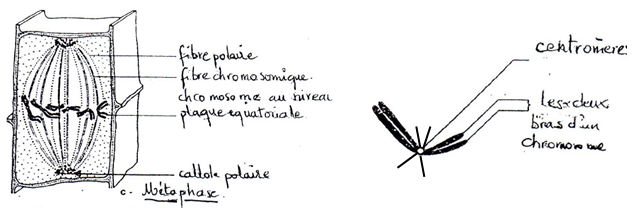 fibre polaire
fibre chromosomique.
chromosome au niveau
plaque équatoriale
calotte polaire
c. Métaphase.
centromères
Les deux
bras d'un
chromosome